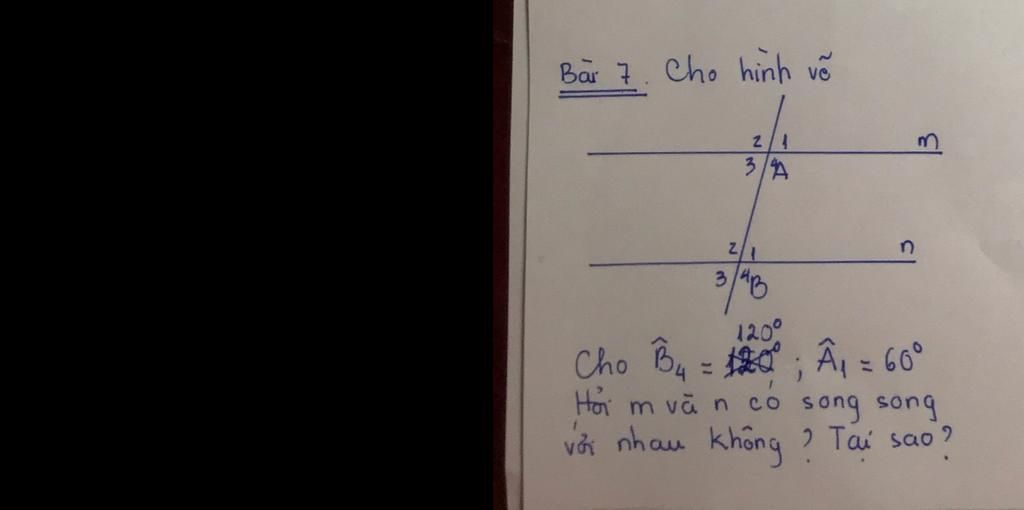 Bài 7. Cho hình vẽ
2 1 m
3 4 A
2 1 n
3 4 B
120°
Cho B̂4 = 120° ; Â1 = 60°
Hỏi m và n có song song
với nhau không ? Tại sao ?